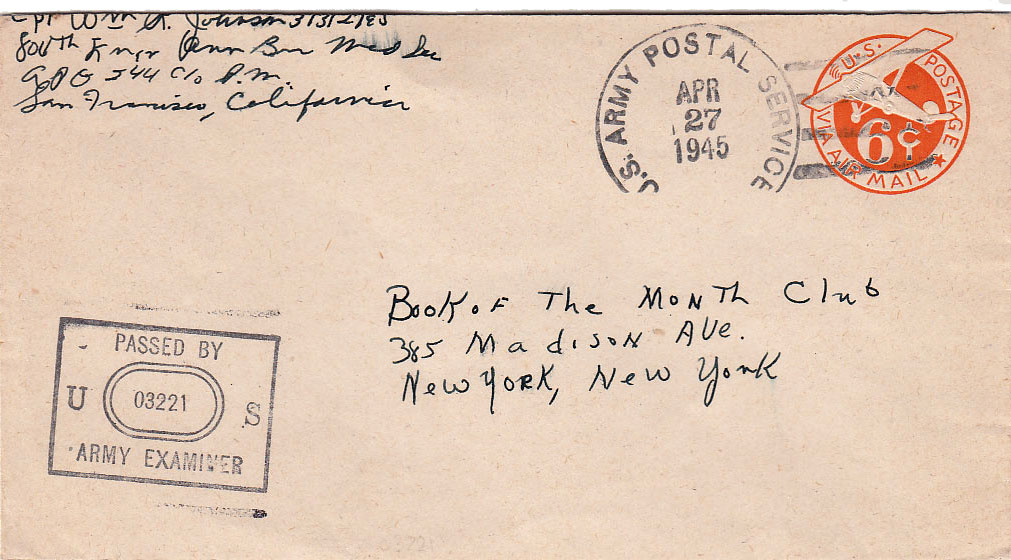 Cpl Wm A. Johnson 31312185
804th Engr Avn Bn Med Sec
APO 244 c/o P.M.
San Francisco, California
U.S. ARMY POSTAL SERVICE
APR
27
1945
U.S. POSTAGE
6¢
VIA AIR MAIL
Book of The Month Club
385 Madison Ave.
New York, New York
PASSED BY
U 03221 S
ARMY EXAMINER